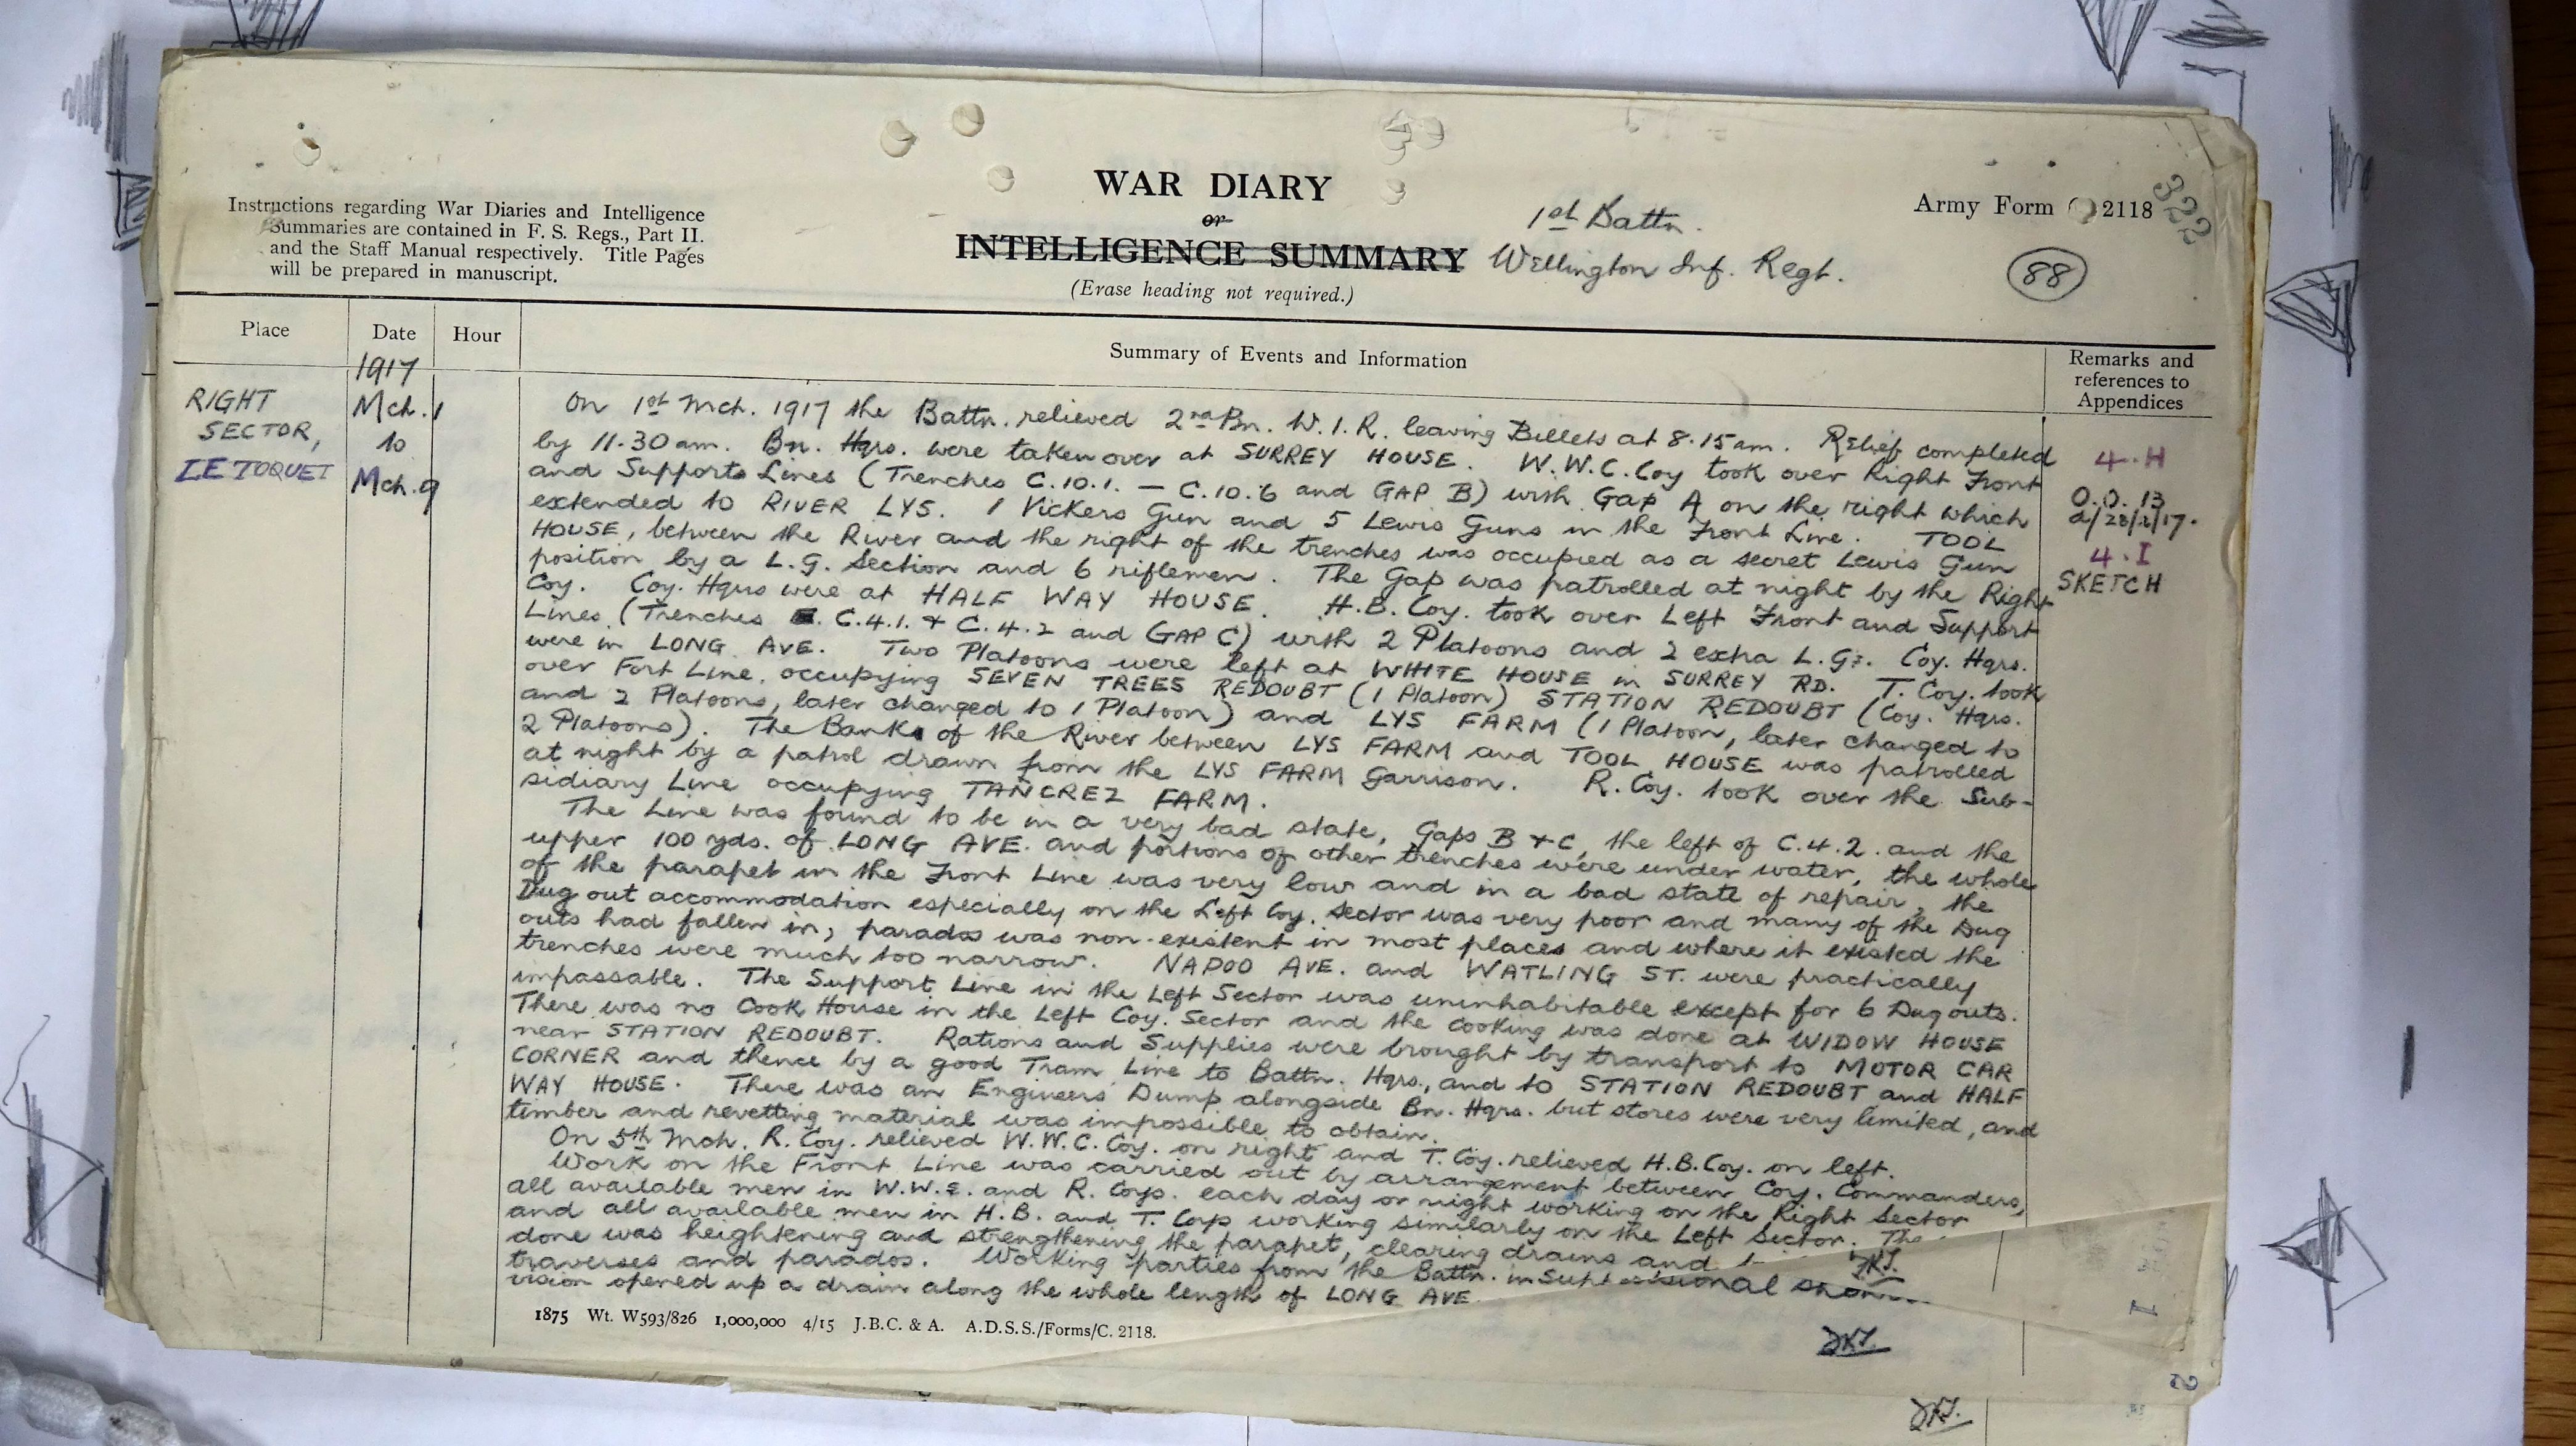 Instructions regarding War Diaries and Intelligence
Summaries are contained in F. S. Regs., Part II.
and the Staff Manual respectively. Title Pages
will be prepared in manuscript.
WAR DIARY
or
INTELLIGENCE SUMMARY
(Erase heading not required.)
1st Battn.
Wellington Inf. Regt.
Army Form 2118
322
88
Place
Date
Hour
Summary of Events and Information
Remarks and
references to
Appendices
RIGHT
SECTOR,
LE TOQUET
1917
Mch. 1
to
Mch. 9
On 1st Mch. 1917 the Battn. relieved 2nd Bn. W.I.R. leaving Billets at 8.15 am. Relief completed
by 11.30 am. Bn. Hqrs. were taken over at SURREY HOUSE. W.W.C. Coy took over Right Front
and Supports Lines (Trenches C.10.1. — C.10.6 and GAP B) with Gap A on the right which
extended to RIVER LYS. 1 Vickers Gun and 5 Lewis Guns in the Front Line. TOOL
HOUSE, between the River and the right of the trenches was occupied as a secret Lewis Gun
position by a L.G. Section and 6 riflemen. The Gap was patrolled at night by the Right
Coy. Coy. Hqrs were at HALF WAY HOUSE. H.B. Coy. took over Left Front and Support
Lines (Trenches C.4.1. + C.4.2 and GAP C) with 2 Platoons and 2 extra L.Gs. Coy. Hqrs.
were in LONG AVE. Two Platoons were left at WHITE HOUSE in SURREY RD. T. Coy. took
over Fort Line, occupying SEVEN TREES REDOUBT (1 Platoon) STATION REDOUBT (Coy. Hqrs.
and 2 Platoons, later changed to 1 Platoon) and LYS FARM (1 Platoon, later changed to
2 Platoons). The Banks of the River between LYS FARM and TOOL HOUSE was patrolled
at night by a patrol drawn from the LYS FARM Garrison. R. Coy. took over the Sub-
sidiary Line occupying TANCREZ FARM.
The Line was found to be in a very bad state, Gaps B + C, the left of C.4.2. and the
upper 100 yds. of LONG AVE. and portions of other trenches were under water, the whole
of the parapet in the Front Line was very low and in a bad state of repair, the
Dug out accommodation especially on the Left Coy. sector was very poor and many of the Dug
outs had fallen in; parados was non-existent in most places and where it existed the
trenches were much too narrow. NAPOO AVE. and WATLING ST. were practically
impassable. The Support Line in the Left Sector was uninhabitable except for 6 Dug outs.
There was no Cook House in the Left Coy. Sector and the cooking was done at WIDOW HOUSE
near STATION REDOUBT. Rations and Supplies were brought by transport to MOTOR CAR
CORNER and thence by a good Tram Line to Battn. Hqrs., and to STATION REDOUBT and HALF
WAY HOUSE. There was an Engineers Dump alongside Bn. Hqrs. but stores were very limited, and
timber and revetting material was impossible to obtain.
On 5th Mch. R. Coy. relieved W.W.C. Coy. on right and T. Coy. relieved H.B. Coy. on left.
Work on the Front Line was carried out by arrangement between Coy. Commanders,
all available men in W.W.C. and R. Coys. each day or night working on the Right Sector
and all available men in H.B. and T. Coys working similarly on the Left Sector. The
done was heightening and strengthening the parapet, clearing drains and
traverses and parados. Working parties from the Battn. in
vision opened up a drain along the whole length of LONG AVE.
4.H
O.O. 13
d/28/2/17.
4.I
SKETCH
1875 Wt. W593/826 1,000,000 4/15 J.B.C. & A. A.D.S.S./Forms/C. 2118.